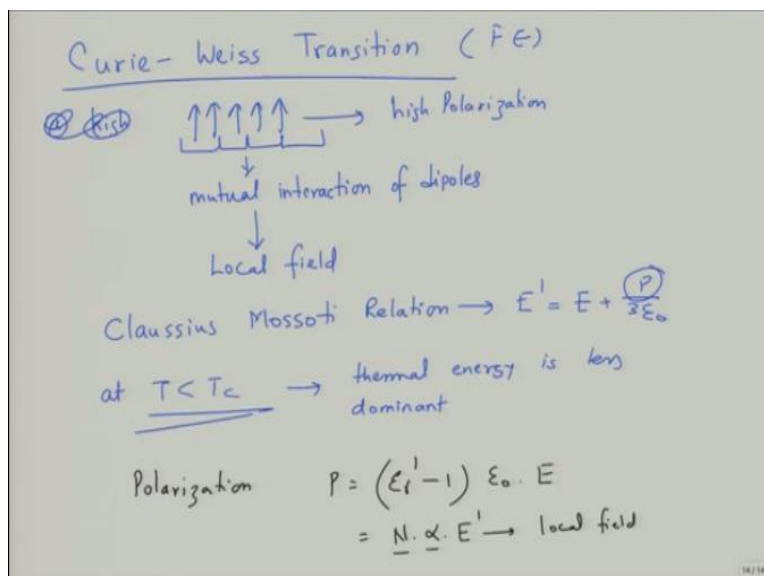 Curie-Weiss Transition (FE)
high
↑↑↑↑↑ → high Polarization
mutual interaction of dipoles
Local field
Claussius Mossoti Relation → E' = E + P/3ε₀
at T < Tc → thermal energy is less
dominant
Polarization P = (εr' - 1) ε₀ . E
= N . α . E' → local field
14/14